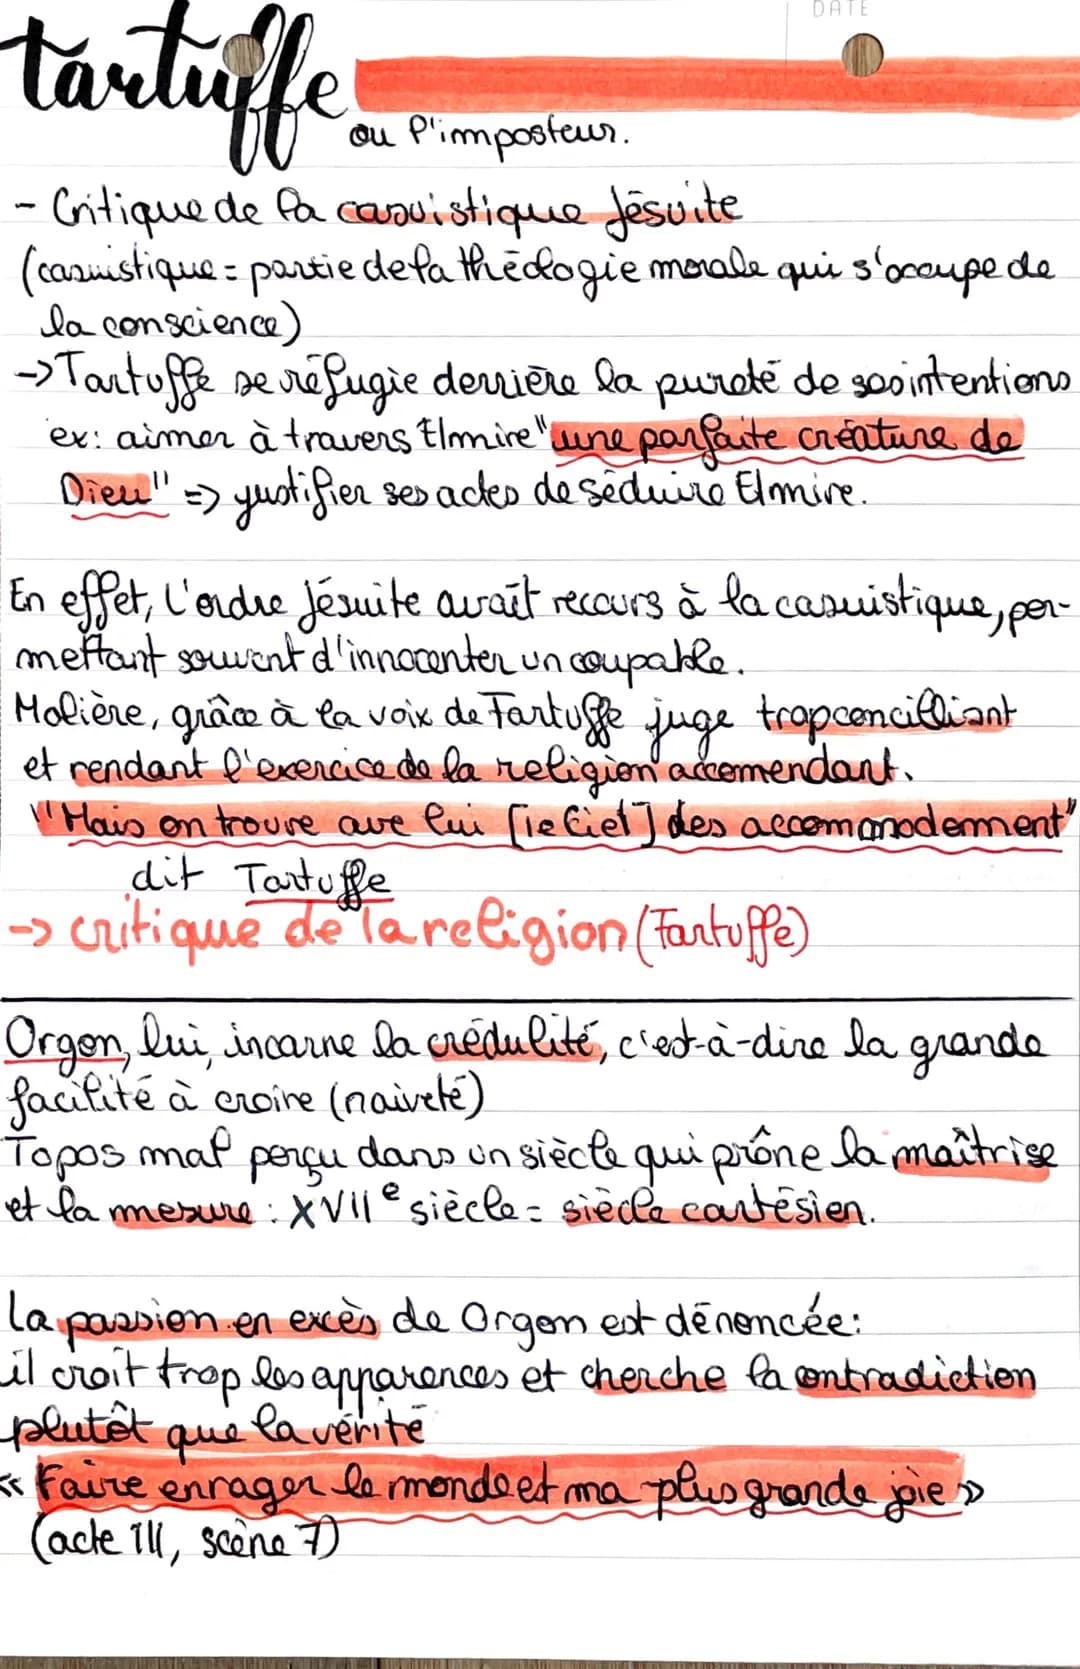 DATE
tartuffe
ou l'imposteur.
- Critique de la casuistique Jésuite
(casuistique = partie de la théologie morale qui s'occupe de
la conscience)
->Tartuffe se réfugie derrière la pureté de ses intentions
ex: aimer à travers Elmire "une parfaite créature de
Dieu" => justifier ses actes de séduire Elmire.
En effet, l'ordre jésuite avait recours à la casuistique, per-
mettant souvent d'innocenter un coupable.
Molière, grâce à la voix de Tartuffe juge trop concilliant
et rendant l'exercice de la religion accomendant.
"Mais on trouve ave lui [le Ciel] des accommodement"
dit Tartuffe
-> critique de la religion (Tartuffe)
Orgon, lui, incarne la crédulité, c'est-à-dire la grande
facilité à croire (naiveté)
Topos mal perçu dans un siècle qui prône la maîtrise
et la mesure : XVIIe siècle = siècle cartésien.
La passion en excès de Orgon est dénoncée:
il croit trop les apparences et cherche la contradiction
plutôt que la vérité
« Faire enrager le monde et ma plus grande joie »
(acte III, scène 7)